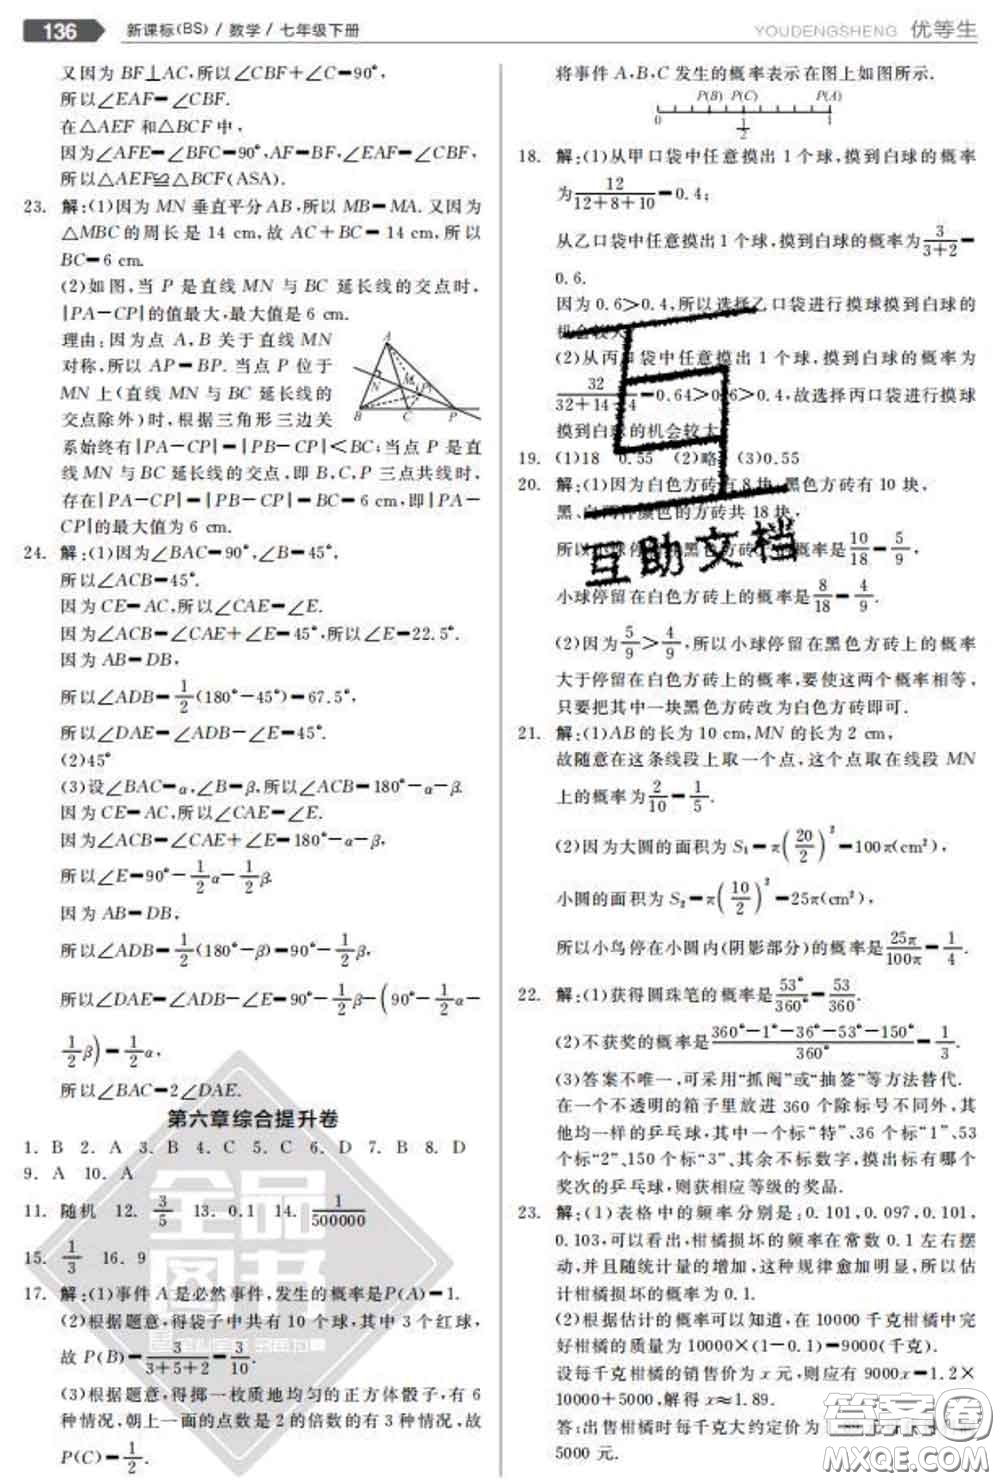 136 新课标(BS) / 数学 / 七年级下册
YOUDENGSHENG 优等生
又因为 BF⊥AC,所以∠CBF+∠C=90°,
所以∠EAF=∠CBF.
在△AEF 和△BCF 中,
因为∠AFE=∠BFC=90°,AF=BF,∠EAF=∠CBF,
所以△AEF≌△BCF(ASA).
23. 解:(1)因为 MN 垂直平分 AB,所以 MB=MA. 又因为
△MBC 的周长是 14 cm,故 AC+BC=14 cm,所以
BC=6 cm.
(2)如图,当 P 是直线 MN 与 BC 延长线的交点时,
|PA-CP|的值最大,最大值是 6 cm.
理由:因为点 A,B 关于直线 MN
对称,所以 AP=BP. 当点 P 位于
MN 上(直线 MN 与 BC 延长线的
交点除外)时,根据三角形三边关
系始终有|PA-CP|=|PB-CP|<BC;当点 P 是直
线 MN 与 BC 延长线的交点,即 B,C,P 三点共线时,
存在|PA-CP|=|PB-CP|=BC=6 cm,即|PA-
CP|的最大值为 6 cm.
24. 解:(1)因为∠BAC=90°,∠B=45°,
所以∠ACB=45°.
因为 CE=AC,所以∠CAE=∠E.
因为∠ACB=∠CAE+∠E=45°,所以∠E=22.5°.
因为 AB=DB,
所以∠ADB=1/2(180°-45°)=67.5°,
所以∠DAE=∠ADB-∠E=45°.
(2)45°
(3)设∠BAC=α,∠B=β,所以∠ACB=180°-α-β.
因为 CE=AC,所以∠CAE=∠E.
因为∠ACB=∠CAE+∠E=180°-α-β,
所以∠E=90°-1/2α-1/2β.
因为 AB=DB,
所以∠ADB=1/2(180°-β)=90°-1/2β,
所以∠DAE=∠ADB-∠E=90°-1/2β-(90°-1/2α-
1/2β)=1/2α,
所以∠BAC=2∠DAE.
第六章综合提升卷
1. B 2. A 3. B 4. C 5. C 6. D 7. B 8. D
9. A 10. A
11. 随机 12. 3/5 13. 0.1 14. 1/500000
15. 1/3 16. 9
17. 解:(1)事件 A 是必然事件,发生的概率是P(A)=1.
(2)根据题意,得袋子中共有 10 个球,其中 3 个红球,
故 P(B)=3/(3+5+2)=3/10.
(3)根据题意,得掷一枚质地均匀的正方体骰子,有 6
种情况,朝上一面的点数是 2 的倍数的有 3 种情况,故
P(C)=1/2.
将事件 A,B,C 发生的概率表示在图上如图所示.
P(B) P(C) P(A)
0 1/2 1
18. 解:(1)从甲口袋中任意摸出 1 个球,摸到白球的概率
为12/(12+8+10)=0.4;
从乙口袋中任意摸出 1 个球,摸到白球的概率为3/(3+2)=
0.6.
因为 0.6>0.4,所以选择乙口袋进行摸球摸到白球的
机会较大.
(2)从丙口袋中任意摸出 1 个球,摸到白球的概率为
32/(32+14+4)=0.64>0.6>0.4,故选择丙口袋进行摸球
摸到白球的机会较大.
19. (1)18 0.55 (2)略 (3)0.55
20. 解:(1)因为白色方砖有 8 块,黑色方砖有 10 块,
黑、白两种颜色的方砖共 18 块,
所以小球停留在黑色方砖上的概率是10/18=5/9,
小球停留在白色方砖上的概率是8/18=4/9.
(2)因为5/9>4/9,所以小球停留在黑色方砖上的概率
大于停留在白色方砖上的概率,要使这两个概率相等,
只要把其中一块黑色方砖改为白色方砖即可.
21. 解:(1)AB 的长为 10 cm,MN 的长为 2 cm,
故随意在这条线段上取一个点,这个点取在线段 MN
上的概率为2/10=1/5.
(2)因为大圆的面积为 S₁=π(20/2)²=100π(cm²),
小圆的面积为 S₂=π(10/2)²=25π(cm²),
所以小鸟停在小圆内(阴影部分)的概率是25π/100π=1/4.
22. 解:(1)获得圆珠笔的概率是53°/360°=53/360.
(2)不获奖的概率是(360°-1°-36°-53°-150°)/360°=1/3.
(3)答案不唯一,可采用“抓阄”或“抽签”等方法替代.
在一个不透明的箱子里放进 360 个除标号不同外,其
他均一样的乒乓球,其中一个标“特”、36 个标“1”、53
个标“2”、150 个标“3”、其余不标数字,摸出标有哪个
奖次的乒乓球,则获相应等级的奖品.
23. 解:(1)表格中的频率分别是:0.101,0.097,0.101,
0.103,可以看出:柑橘损坏的频率在常数 0.1 左右摆
动,并且随统计量的增加,这种规律愈加明显,所以估
计柑橘损坏的概率为 0.1.
(2)根据估计的概率可以知道,在 10000 千克柑橘中完
好柑橘的质量为 10000×(1-0.1)=9000(千克).
设每千克柑橘的销售价为 x 元,则应有 9000x=1.2×
10000+5000,解得 x≈1.89.
答:出售柑橘时每千克大约定价为 1.89 元
5000 元.
互助文档
全品图书
答案圈
MXQE.COM